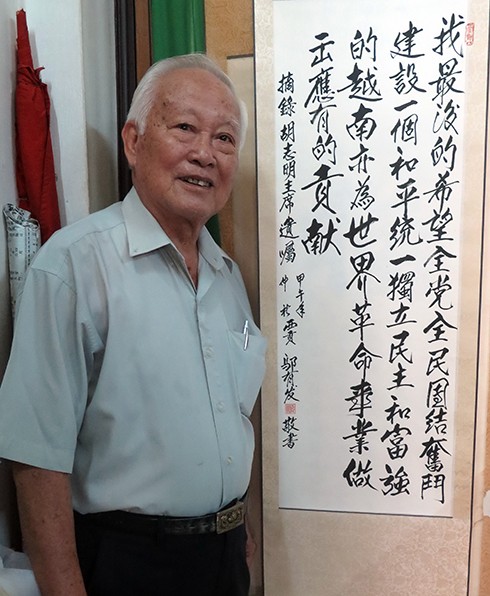 我最後的希望全党全民團结奮鬥
建設一個和平統一獨立民主和富強
的越南亦為世界革命事業做
出應有的貢献
摘錄胡志明主席遺囑
甲午年
鄔有发
敬書